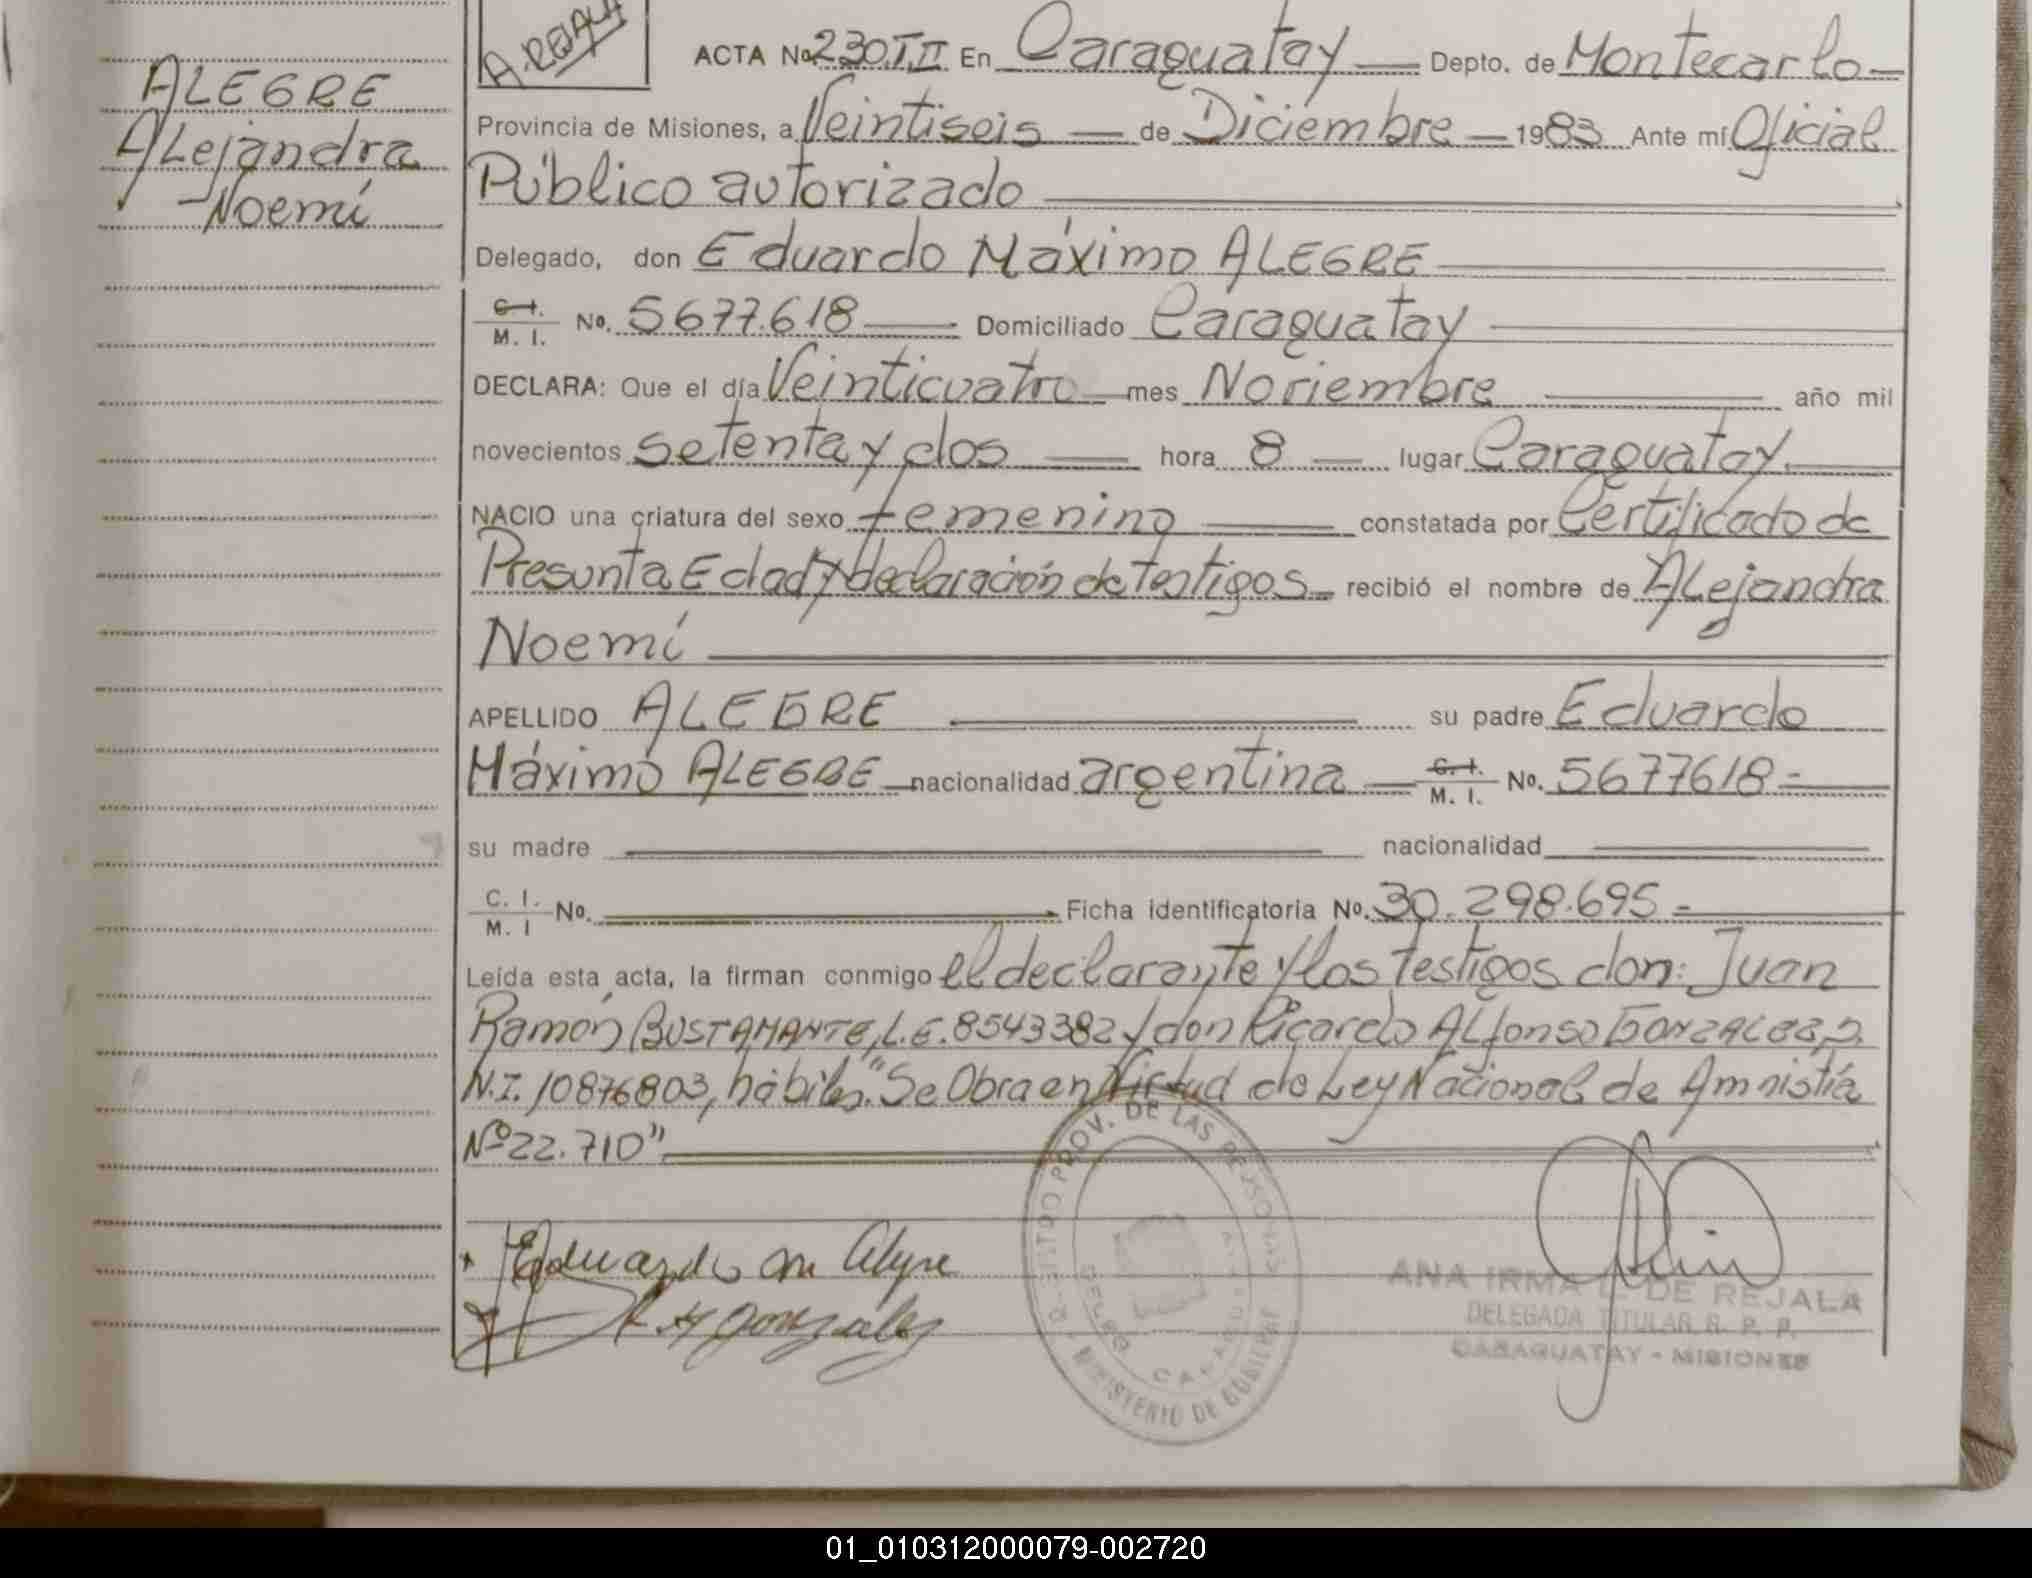 ALEGRE
Alejandra
Noemí
A. REJALA
ACTA No. 230.T.II En Caraguatay Depto. de Montecarlo
Provincia de Misiones, a Veintiseis de Diciembre 1983 Ante mí Oficial
Público autorizado
Delegado, don Eduardo Máximo ALEGRE
C.I. / M. I. No. 5677.618 Domiciliado Caraguatay
DECLARA: Que el día Veinticuatro mes Noviembre año mil
novecientos setenta y dos hora 8 lugar Caraguatay
NACIO una criatura del sexo femenino constatada por Certificado de
Presunta Edad y declaración de testigos recibió el nombre de Alejandra
Noemí
APELLIDO ALEGRE su padre Eduardo
Máximo ALEGRE nacionalidad argentina C.I. / M. I. No. 5677618-
su madre nacionalidad
C. I. / M. I No. Ficha identificatoria No. 30.298.695-
Leída esta acta, la firman conmigo el declarante y los testigos don: Juan
Ramón BUSTAMANTE, L.E. 8543382 y don Ricardo Alfonso GONZALEZ, D.
N.I. 10876803, hábiles. "Se Obra en Virtud de Ley Nacional de Amnistía
Nº 22.710"
Eduardo M Alegre
R. A Gonzalez
REGISTRO PROV. DE LAS PERSONAS
MINISTERIO DE GOBIERNO
DELEG. CARAGUATAY
ANA IRMA L. DE REJALA
DELEGADA TITULAR R. P. P.
CARAGUATAY - MISIONES
01_010312000079-002720